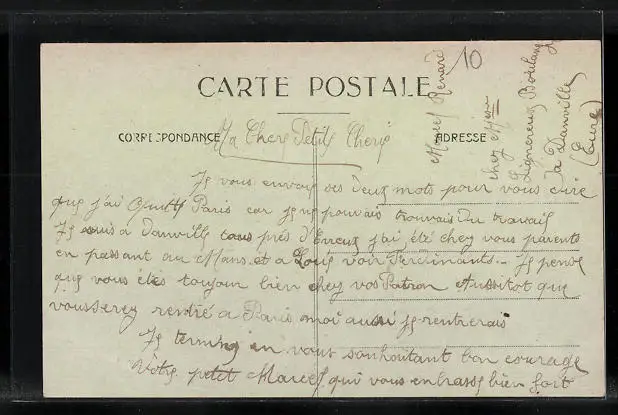 10
CARTE POSTALE
CORRESPONDANCE
ADRESSE
Ma Cher Petite Cherie
Je vous envois ses deux mots pour vous dire
que j'ai quitté Paris car je ne pouvais trouvais du travail
Je suis a Danville tous prés d'Evreux j'ai été chez vous parents
en passant au Mans et a Louis voir Ferdinants. Je pense
que vous étés toujour bien chez vos Patron Aussitot que
vousserez rentré a Paris moi aussi je rentrerais
Je termine en vous souhoutant bon courage
Votre petit Marcel qui vous enbrasse bien fort
Marcel Renard
chez Mr
Lignereux Boulang
a Danville
(Eure)